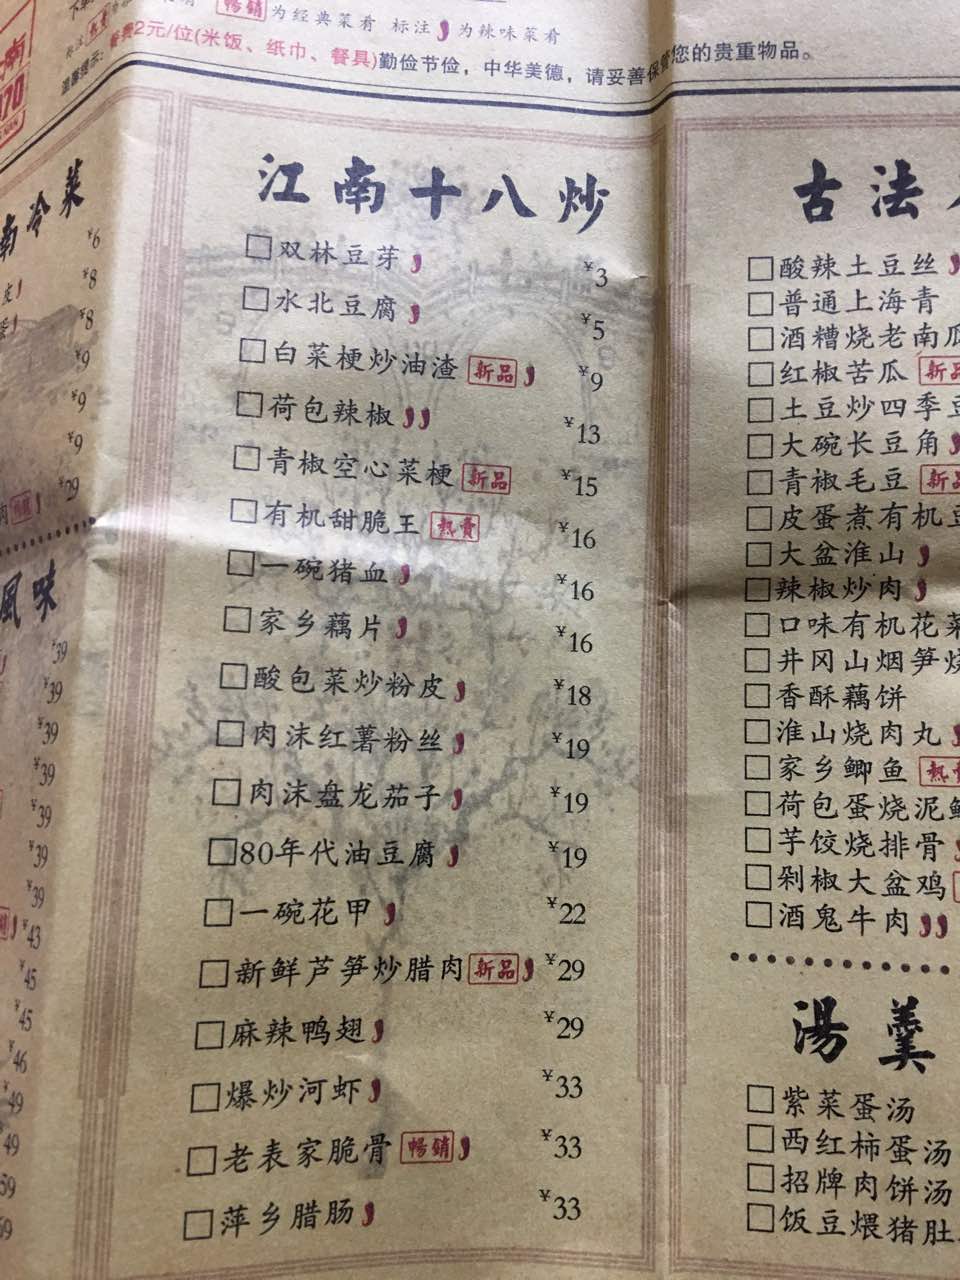 畅销 为经典菜肴 标注 为辣味菜肴
温馨提示：餐费2元/位(米饭、纸巾、餐具)勤俭节俭，中华美德，请妥善保管您的贵重物品。
南冷菜
¥6
¥8
¥8
¥9
¥9
¥9
¥29
風味
¥39
¥39
¥39
¥39
¥39
¥39
¥39
¥43
¥45
¥45
¥46
¥49
¥49
江南十八炒
双林豆芽 ¥3
水北豆腐 ¥5
白菜梗炒油渣 新品 ¥9
荷包辣椒 ¥13
青椒空心菜梗 新品 ¥15
有机甜脆王 熱賣 ¥16
一碗猪血 ¥16
家乡藕片 ¥16
酸包菜炒粉皮 ¥18
肉沫红薯粉丝 ¥19
肉沫盘龙茄子 ¥19
80年代油豆腐 ¥19
一碗花甲 ¥22
新鲜芦笋炒腊肉 新品 ¥29
麻辣鸭翅 ¥29
爆炒河虾 ¥33
老表家脆骨 暢銷 ¥33
萍乡腊肠 ¥33
古法
酸辣土豆丝
普通上海青
酒糟烧老南瓜
红椒苦瓜 新品
土豆炒四季豆
大碗长豆角
青椒毛豆 新品
皮蛋煮有机豆
大盆淮山
辣椒炒肉
口味有机花菜
井冈山烟笋烧
香酥藕饼
淮山烧肉丸
家乡鲫鱼 熱賣
荷包蛋烧泥鳅
芋饺烧排骨
剁椒大盆鸡
酒鬼牛肉
湯羹
紫菜蛋汤
西红柿蛋汤
招牌肉饼汤
饭豆煨猪肚